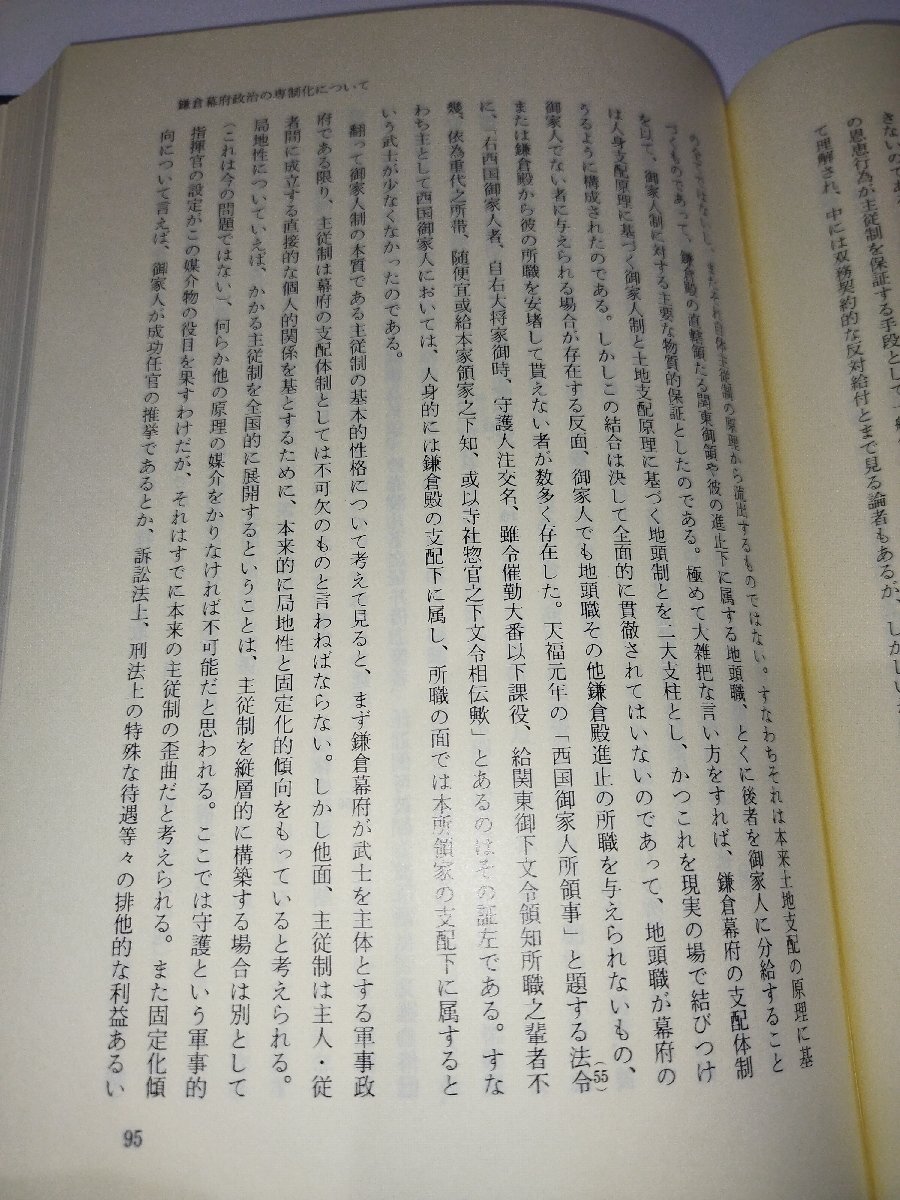 きないのである
の恩恵行為が主従制を保証する手段として一般
て理解され、中には双務契約的な反対給付とまで見る論者もあるが、しかし
鎌倉幕府政治の専制化について
主従制の原理から流出するものではない。すなわちそれは本来土地支配の原理に基
づくものであって、鎌倉殿の直轄領たる関東御領や彼の進止下に属する地頭職、とくに後者を御家人に分給すること
を以て、御家人制に対する主要な物質的保証としたのである。極めて大雑把な言い方をすれば、鎌倉幕府の支配体制
は人身支配原理に基づく御家人制と土地支配原理に基づく地頭制とを二大支柱とし、かつこれを現実の場で結びつけ
うるように構成されたのである。しかしこの結合は決して全面的に貫徹されてはいないのであって、地頭職が幕府の
御家人でない者に与えられる場合が存在する反面、御家人でも地頭職その他鎌倉殿進止の所職を与えられないもの、
または鎌倉殿から彼の所職を安堵して貰えない者が数多く存在した。天福元年の「西国御家人所領事」と題する法令(55)
に、「右西国御家人者、自右大将家御時、守護人注交名、雖令催勤大番以下課役、給関東御下文令領知所職之輩者不
幾、依為重代之所帯、随便宜或給本家領家之下知、或以寺社惣官之下文令相伝歟」とあるのはその証左である。すな
わち主として西国御家人においては、人身的には鎌倉殿の支配下に属し、所職の面では本所領家の支配下に属すると
いう武士が少なくなかったのである。
翻って御家人制の本質である主従制の基本的性格について考えて見ると、まず鎌倉幕府が武士を主体とする軍事政
府である限り、主従制は幕府の支配体制としては不可欠のものと言わねばならない。しかし他面、主従制は主人・従
者間に成立する直接的な個人的関係を基とするために、本来的に局地性と固定化的傾向をもっていると考えられる。
局地性についていえば、かかる主従制を全国的に展開するということは、主従制を縦層的に構築する場合は別として
(これは今の問題ではない)、何らか他の原理の媒介をかりなければ不可能だと思われる。ここでは守護という軍事的
指揮官の設定がこの媒介物の役目を果すわけだが、それはすでに本来の主従制の歪曲だと考えられる。また固定化傾
向について言えば、御家人が成功任官の推挙であるとか、訴訟法上、刑法上の特殊な待遇等々の排他的な利益あるい
95